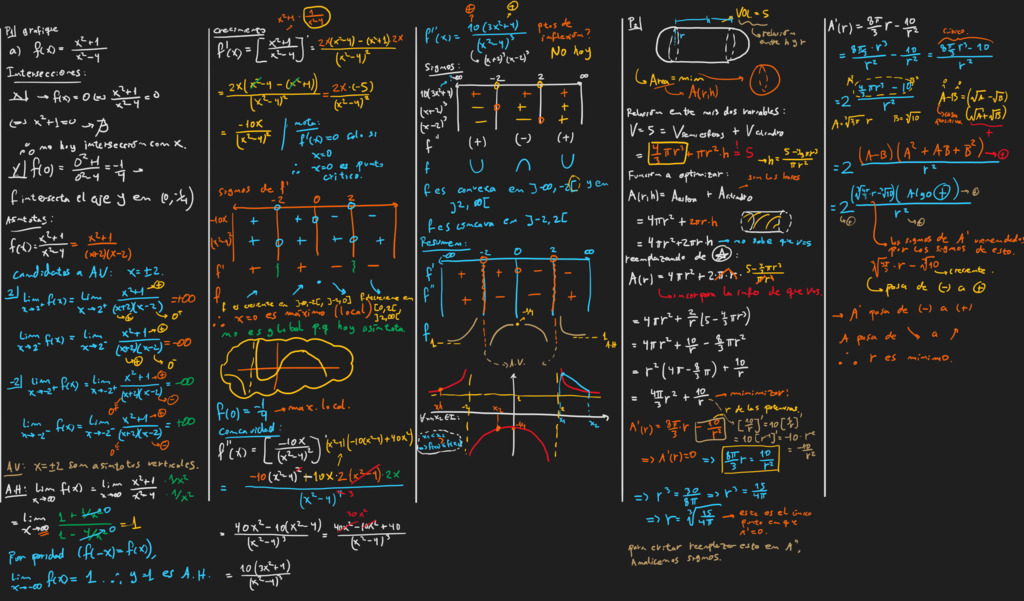 P1 grafique
a) f(x) = (x²+1)/(x²-4)
Intersecciones:
X| → f(x) = 0 ⇔ (x²+1)/(x²-4) = 0
⇔ x²+1 = 0 →
∴ no hay intersección con x.
Y| f(0) = (0²+1)/(0²-4) = -1/4 →
f intersecta el eje y en (0, -1/4)
Asíntotas:
f(x) = (x²+1)/(x²-4) = (x²+1)/((x+2)(x-2))
candidatos a AV: x = ±2.
2| lim x→2⁺ f(x) = lim x→2⁺ (x²+1)/((x+2)(x-2)) = +∞
lim x→2⁻ f(x) = lim x→2⁻ (x²+1)/((x+2)(x-2)) = -∞
-2| lim x→-2⁺ f(x) = lim x→-2⁺ (x²+1)/((x+2)(x-2)) = -∞
lim x→-2⁻ f(x) = lim x→-2⁻ (x²+1)/((x+2)(x-2)) = +∞
AV: x = ±2 son asíntotas verticales.
A.H: lim x→∞ f(x) = lim x→∞ (x²+1)/(x²-4) · (1/x²)/(1/x²)
= lim x→∞ (1 + 1/x²)/(1 - 4/x²) = 1
Por paridad (f(-x) = f(x)),
lim x→-∞ f(x) = 1 ∴ y = 1 es A.H.
crecimiento
x²+1 · 1/(x²-4)
f'(x) = [(x²+1)/(x²-4)]' = (2x(x²-4) - (x²+1)2x)/(x²-4)²
= 2x(x²-4-(x²+1))/(x²-4)² = 2x·(-5)/(x²-4)²
= -10x/(x²-4)²
nota:
f'(x) = 0 solo si
x = 0
∴ x = 0 es punto
crítico.
signos de f'
-2 0 2
-10x + + - -
(x²-4)² + + + +
f' + + - -
f
f es creciente en ]-∞,-2[, ]-2,0[
f decreciente en ]0,2[, ]2,∞[
∴ x = 0 es máximo (local)
no es global p.q hay asíntota
f(0) = -1/4 → max. local.
Concavidad:
f''(x) = [-10x/(x²-4)²]'
(x²-4)(-10(x²-4)+40x²)
= (-10(x²-4)² + 10x·2(x²-4)·2x)/(x²-4)⁴ 3
30x²
= (40x² - 10(x²-4))/(x²-4)³ = (40x² - 10x² + 40)/(x²-4)³
= 10(3x²+4)/(x²-4)³
f''(x) = 10(3x²+4)/(x²-4)³
ptos de
inflexión?
No hay
(x+2)³(x-2)³
Signos:
-∞ -2 2 ∞
10(3x²+4) + + +
(x+2)³ - + +
(x-2)³ - - +
f'' (+) (-) (+)
f ∪ ∩ ∪
f es convexa en ]-∞,-2[ y en
]2,∞[
f es cóncava en ]-2,2[
Resumen:
-∞ -2 0 2 ∞
f' + + - -
f'' + - - +
f
1
-1/4
1
A.H.
A.V.
-2
2
-1/4
x1
x2
P2|
VOL = 5
h
r
relación
entre h y r
Area = mín
A(r,h)
Relación entre mis dos variables:
V = 5 = Vsemiesferas + Vcilindro
= 4/3 πr³ + πr²·h = 5
→ h = (5 - 4/3 πr³)/(πr²)
Función a optimizar:
sin las bases
A(r,h) = Aesfera + Acilindro
= 4πr² + 2πr·h
= 4πr² + 2πr·h → no sabe que V=5
reemplazando de A:
A(r) = 4πr² + 2πr · (5 - 4/3 πr³)/(πr²)
incorpora la info de que V=5.
= 4πr² + 2/r (5 - 4/3 πr³)
= 4πr² + 10/r - 8/3 πr²
= r²(4π - 8/3 π) + 10/r
= 4π/3 r² + 10/r → minimizar:
r de las potencias,
A'(r) = 8π/3 r - 10/r²
[10/r]' = 10[1/r]'
= 10[r⁻¹]' = -10·r⁻²
= -10/r²
⇒ A'(r) = 0 ⇒ 8π/3 r = 10/r²
⇒ r³ = 30/8π ⇒ r³ = 15/4π
⇒ r = ³√(15/4π) → este es el único
punto en que
A' = 0.
para evitar reemplazar esto en A'',
Analicemos signos.
A'(r) = 8π/3 r - 10/r²
= (8π/3 · r³)/r² - 10/r² = (8π/3 r³ - 10)/r²
A³ - B³
A-B = (√A - √B)
(√A + √B)
= 2 (A-B)(A² + AB + B²)/r²
(Algo ⊕)
r²
los signos de A' vienen dados
por los signos de esto.
→ creciente.
pasa de (-) a ⊕
→ A' pasa de (-) a (+)
A pasa de ↘ a ↗
∴ r es mínimo.